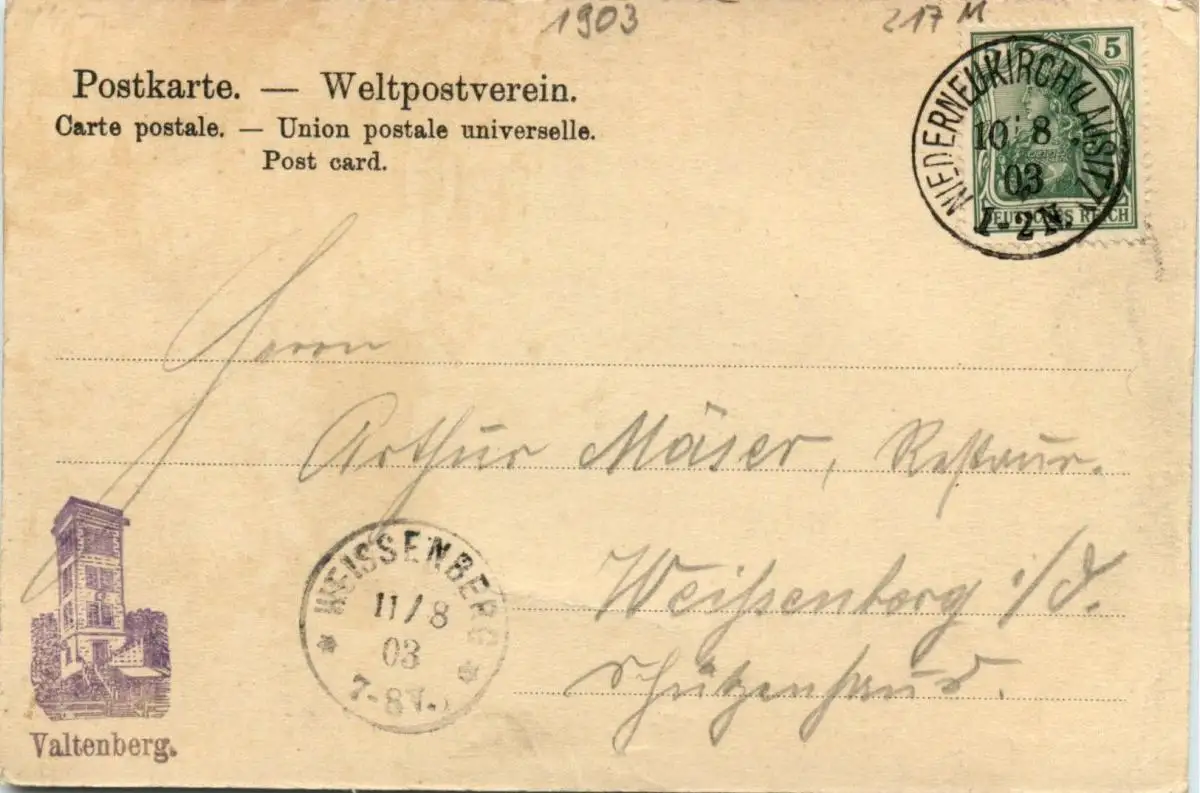 1903
217 M
Postkarte. — Weltpostverein.
Carte postale. — Union postale universelle.
Post card.
5
DEUTSCHES REICH
NIEDERNEUKIRCH (LAUSITZ)
10 8
03
1-2N.
Herrn
Arthur Mäser, Restaur.
Weißenberg i/S.
Schützenhaus.
WEISSENBERG
11/8
03
7-8V.
Valtenberg.